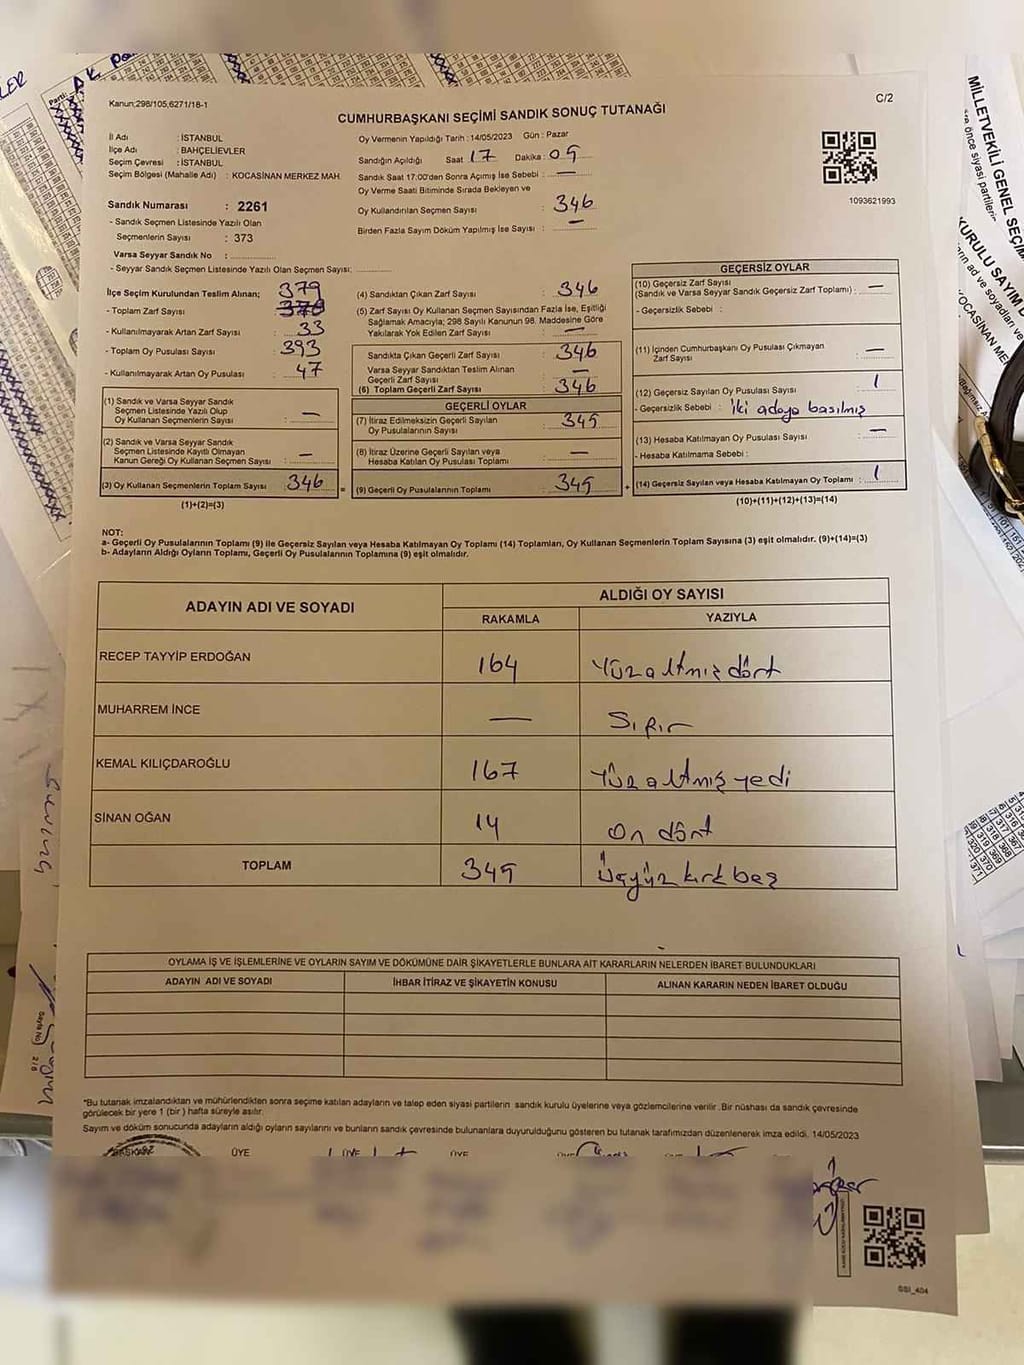 Kanun;298/105,6271/18-1
C/2
CUMHURBAŞKANI SEÇİMİ SANDIK SONUÇ TUTANAĞI
İl Adı : İSTANBUL
İlçe Adı : BAHÇELİEVLER
Seçim Çevresi : İSTANBUL
Seçim Bölgesi (Mahalle Adı) : KOCASİNAN MERKEZ MAH.
Sandık Numarası : 2261
- Sandık Seçmen Listesinde Yazılı Olan
Seçmenlerin Sayısı : 373
Varsa Seyyar Sandık No :
- Seyyar Sandık Seçmen Listesinde Yazılı Olan Seçmen Sayısı:
Oy Vermenin Yapıldığı Tarih : 14/05/2023 Gün : Pazar
Sandığın Açıldığı Saat 17 Dakika : 05
Sandık Saat 17:00'den Sonra Açımış İse Sebebi : —
Oy Verme Saati Bitiminde Sırada Bekleyen ve
Oy Kullandırılan Seçmen Sayısı : 346
Birden Fazla Sayım Döküm Yapılmış İse Sayısı : —
1093621993
İlçe Seçim Kurulundan Teslim Alınan; 379
- Toplam Zarf Sayısı :
- Kullanılmayarak Artan Zarf Sayısı : 33
- Toplam Oy Pusulası Sayısı : 393
- Kullanılmayarak Artan Oy Pusulası : 47
(1) Sandık ve Varsa Seyyar Sandık
Seçmen Listesinde Yazılı Olup
Oy Kullanan Seçmenlerin Sayısı : —
(2) Sandık ve Varsa Seyyar Sandık
Seçmen Listesinde Kayıtlı Olmayan
Kanun Gereği Oy Kullanan Seçmen Sayısı : —
(3) Oy Kullanan Seçmenlerin Toplam Sayısı : 346 =
(1)+(2)=(3)
(4) Sandıktan Çıkan Zarf Sayısı : 346
(5) Zarf Sayısı Oy Kullanan Seçmen Sayısından Fazla İse, Eşitliği
Sağlamak Amacıyla; 298 Sayılı Kanunun 98. Maddesine Göre
Yakılarak Yok Edilen Zarf Sayısı : —
Sandıkta Çıkan Geçerli Zarf Sayısı : 346
Varsa Seyyar Sandıktan Teslim Alınan
Geçerli Zarf Sayısı : —
(6) Toplam Geçerli Zarf Sayısı : 346
GEÇERLİ OYLAR
(7) İtiraz Edilmeksizin Geçerli Sayılan
Oy Pusulalarının Sayısı : 345
(8) İtiraz Üzerine Geçerli Sayılan veya
Hesaba Katılan Oy Pusulası Toplamı : —
(9) Geçerli Oy Pusulalarının Toplamı : 345 +
GEÇERSİZ OYLAR
(10) Geçersiz Zarf Sayısı
(Sandık ve Varsa Seyyar Sandık Geçersiz Zarf Toplamı) : —
- Geçersizlik Sebebi :
(11) İçinden Cumhurbaşkanı Oy Pusulası Çıkmayan
Zarf Sayısı : —
(12) Geçersiz Sayılan Oy Pusulası Sayısı : 1
- Geçersizlik Sebebi : iki adaya basılmış
(13) Hesaba Katılmayan Oy Pusulası Sayısı : —
- Hesaba Katılmama Sebebi :
(14) Geçersiz Sayılan veya Hesaba Katılmayan Oy Toplamı : 1
(10)+(11)+(12)+(13)=(14)
NOT:
a- Geçerli Oy Pusulalarının Toplamı (9) ile Geçersiz Sayılan veya Hesaba Katılmayan Oy Toplamı (14) Toplamları, Oy Kullanan Seçmenlerin Toplam Sayısına (3) eşit olmalıdır. (9)+(14)=(3)
b- Adayların Aldığı Oyların Toplamı, Geçerli Oy Pusulalarının Toplamına (9) eşit olmalıdır.
ADAYIN ADI VE SOYADI ALDIĞI OY SAYISI
RAKAMLA YAZIYLA
RECEP TAYYİP ERDOĞAN 164 Yüzaltmışdört
MUHARREM İNCE — Sıfır
KEMAL KILIÇDAROĞLU 167 Yüzaltmışyedi
SİNAN OĞAN 14 On dört
TOPLAM 345 Üçyüzkırkbeş
OYLAMA İŞ VE İŞLEMLERİNE VE OYLARIN SAYIM VE DÖKÜMÜNE DAİR ŞİKAYETLERLE BUNLARA AİT KARARLARIN NELERDEN İBARET BULUNDUKLARI
ADAYIN ADI VE SOYADI İHBAR İTİRAZ VE ŞİKAYETİN KONUSU ALINAN KARARIN NEDEN İBARET OLDUĞU
*Bu tutanak imzalandıktan ve mühürlendikten sonra seçime katılan adayların ve talep eden siyasi partilerin sandık kurulu üyelerine veya gözlemcilerine verilir. Bir nüshası da sandık çevresinde
görülecek bir yere 1 (bir) hafta süreyle asılır.
Sayım ve döküm sonucunda adayların aldığı oyların sayılarını ve bunların sandık çevresinde bulunanlara duyurulduğunu gösteren bu tutanak tarafımızdan düzenlenerek imza edildi. 14/05/2023
BAŞKAN ÜYE ÜYE ÜYE ÜYE
GSI_404
MİLLETVEKİLİ GENEL SEÇİM
KURULU SAYIM D
KOCASİNAN ME
Sayfa No
2/6